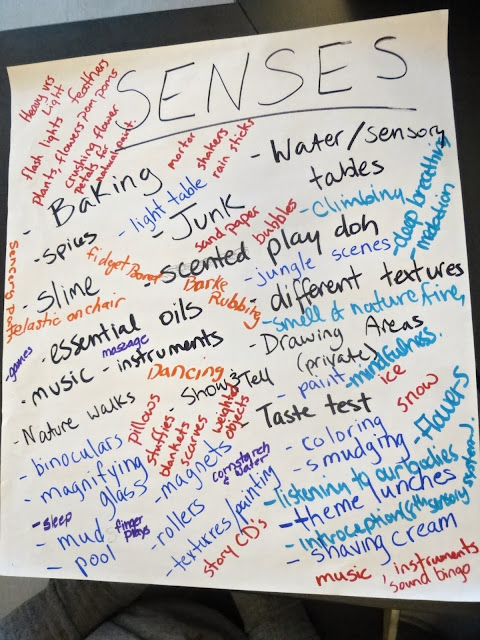 SENSES
Heavy vrs
Light
feathers
flash lights
plants, flowers pom poms
crushing flower
petals for
natural paint
mortor
shakers
rain sticks
- Baking
- light table
- Junk
- Water/sensory
tables
- spices
sand paper
bubbles
- Climbing
- deep breathing
- medation
sencory path
fidget
- scented play doh
- jungle scenes
- slime
Barke
Rubbing
- different textures
elastic on chair
- essential oils
- smell of nature fire,
- games
massage
- music - instruments
- Drawing Areas
(private)
Dancing
- Show & Tell
- paint
- mindfulness.
ice
snow
- Nature walks
pillows
stuffies
blankets
scarves
weighted
objects
- Taste test
- Flowers
- binoculars
- magnifying
glass
- magnets
cornstarch
& water
- coloring
- smudging
- listening to our bodies
- sleep
- mud
finger
plays
- rollers
- theme lunches
- introception (8th sensory system).
- pool
- textures/painting
story CD's
- shaving cream
music, instruments
sound bingo